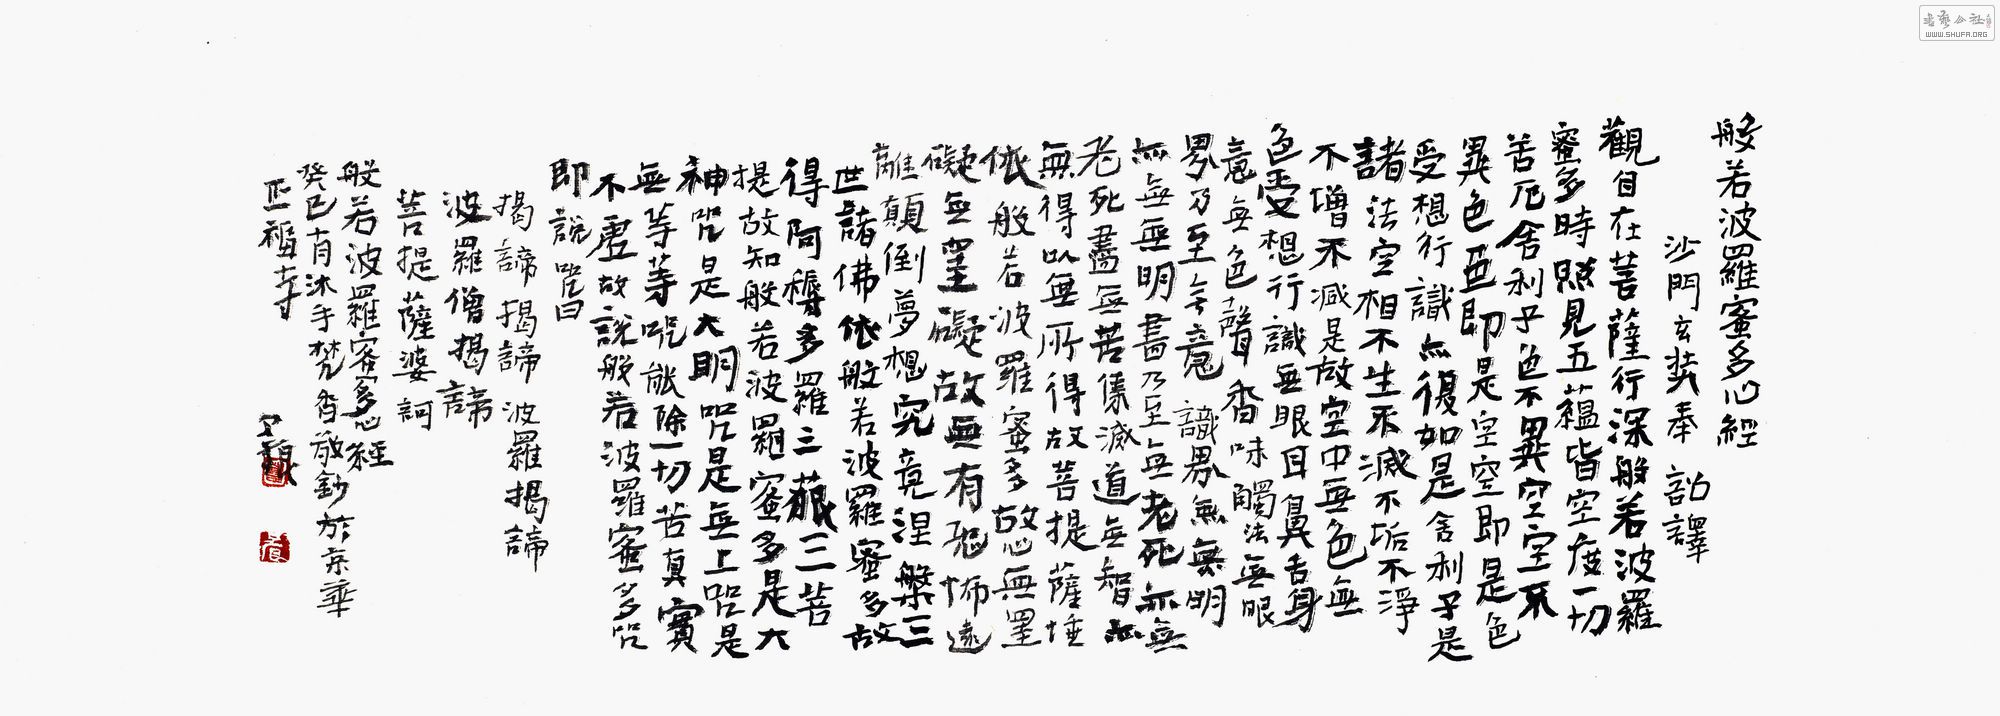 般若波羅蜜多心經
沙門玄奘奉 詔譯
觀自在菩薩行深般若波羅
蜜多時照見五蘊皆空度一切
苦厄舍利子色不異空空不
異色色即是空空即是色
受想行識亦復如是舍利子是
諸法空相不生不滅不垢不淨
不增不減是故空中無色無
色受想行識無眼耳鼻舌身
意無色聲香味觸法無眼
界乃至無意識界無無明
亦無無明盡乃至無老死亦無
老死盡無苦集滅道無智亦
無得以無所得故菩提薩埵
依般若波羅蜜多故心無罣
礙無罣礙故無有恐怖遠
離顛倒夢想究竟涅槃三
世諸佛依般若波羅蜜多故
得阿耨多羅三藐三菩
提故知般若波羅蜜多是大
神咒是大明咒是無上咒是
無等等咒能除一切苦真實
不虛故說般若波羅蜜多咒
即說咒曰
揭諦揭諦波羅揭諦
波羅僧揭諦
菩提薩婆訶
般若波羅蜜多心經
癸巳十月沐手焚香敬鈔於京華
正福寺
書藝公社
WWW.SHUFA.ORG